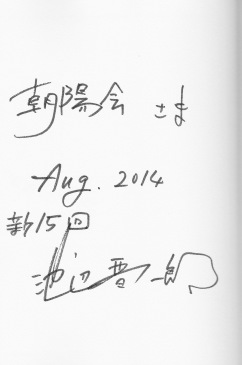 朝陽会 さま
Aug. 2014
新15回
池辺晋一郎